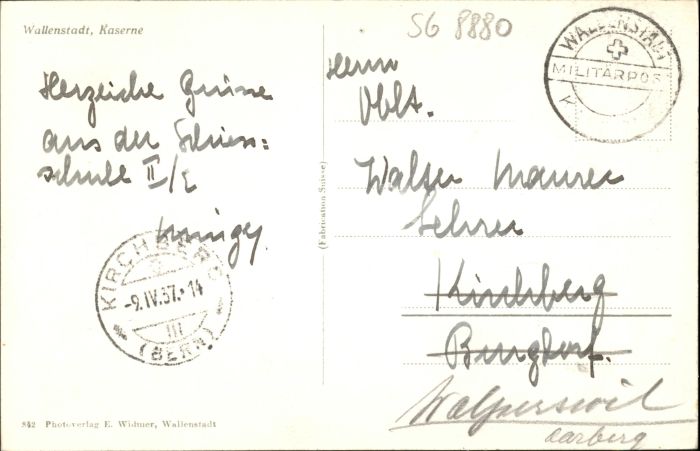 Wallenstadt, Kaserne
SG 8880
WALLENSTADT
MILITÄRPOST
Herzliche Grüsse
aus der Schiess=
schule II/2
KIRCHBERG
-9.IV.37.-14
III
(BERN)
842 Photoverlag E. Widmer, Wallenstadt
(Fabrication Suisse)
Herrn
Oblt.
Walter Maurer
Lehrer
Kirchberg
Burgdorf.
Walperswil
Aarberg